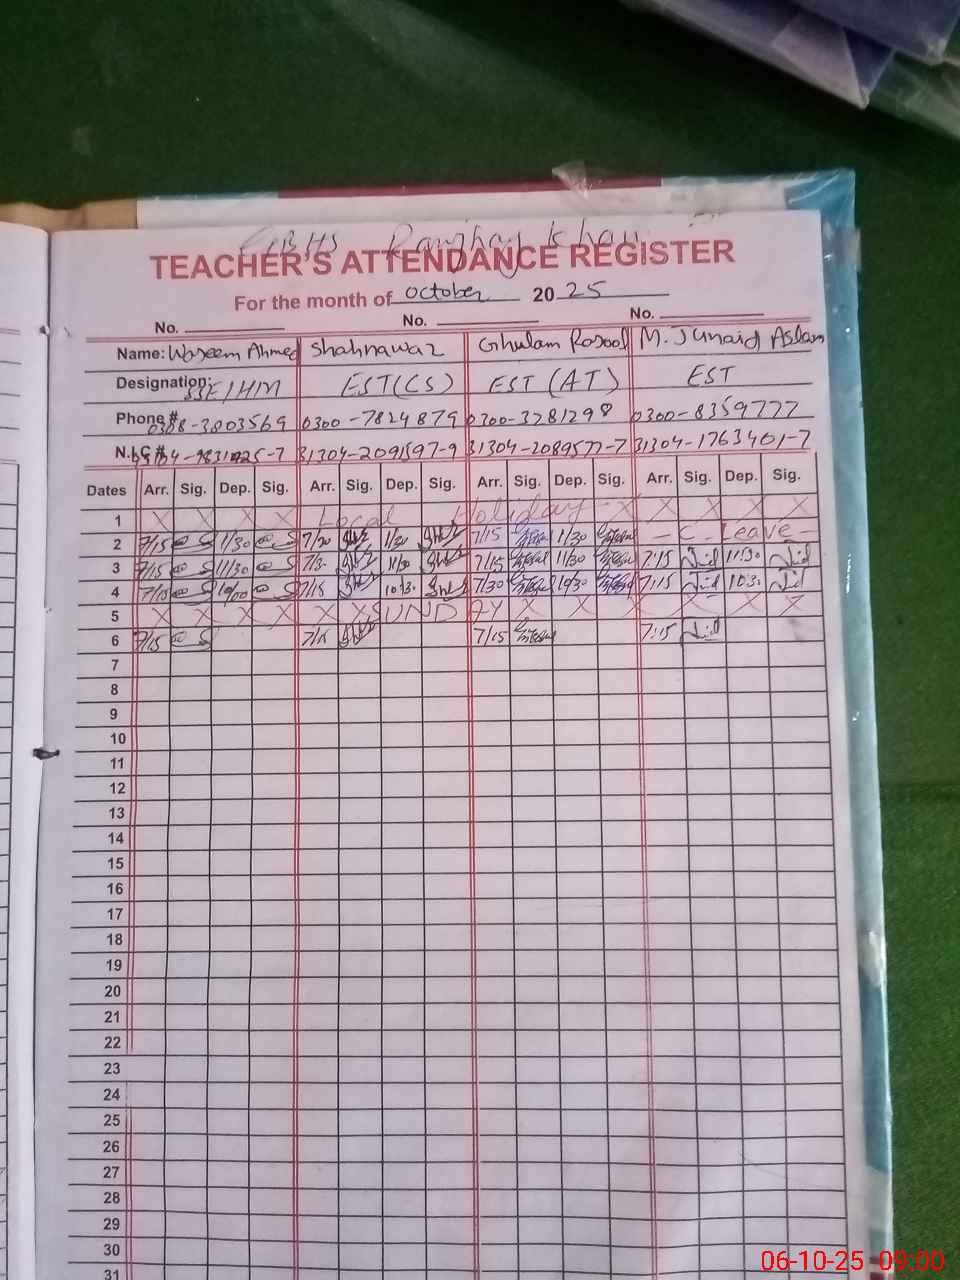 GBHS Ranjhay Khan
TEACHER'S ATTENDANCE REGISTER
For the month of October 2025
No. No. No.
Name: Waseem Ahmed Shahnawaz Ghulam Rasool M. Junaid Aslam
Designation: SSE/HM EST(CS) EST (AT) EST
Phone # 0300-7824879 0300-3281298 0300-8359777
N.I.C # 31304-2091597-9 31304-2089577-7 31304-1763401-7
Dates Arr. Sig. Dep. Sig. Arr. Sig. Dep. Sig. Arr. Sig. Dep. Sig. Arr. Sig. Dep. Sig.
1 X X X X Local Holiday - X X X X X
2 7/15 1/30 7/20 1/30 7/15 1/30 - C. Leave -
3 7/15 11/30 7/3. 11/30 7/15 11/30 7:15 11:30
4 7/15 10/30 7/15 10:3. 7/30 10/30 7:15 10:3.
5 X X X X X X SUNDAY X X X X X X
6 7/15 7/15 7/15 7:15
7
8
9
10
11
12
13
14
15
16
17
18
19
20
21
22
23
24
25
26
27
28
29
30
31
06-10-25 09:00